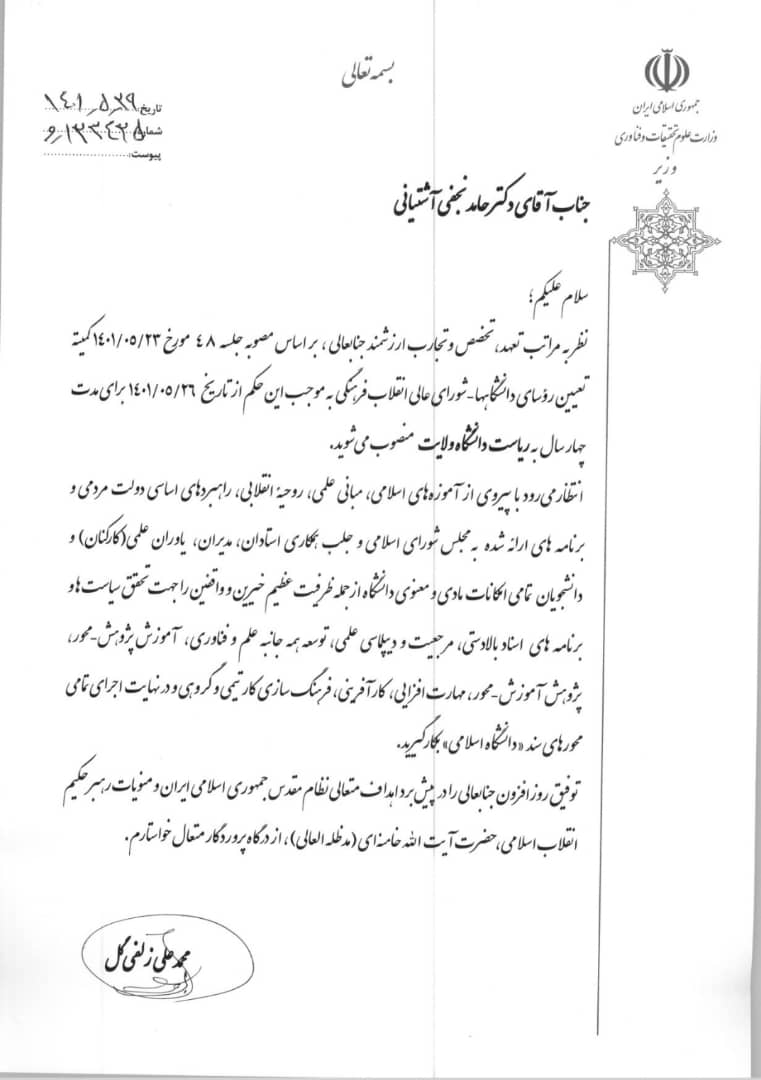 بسمه تعالی
جمهوری اسلامی ایران
وزارت علوم تحقیقات و فناوری
وزیر
تاریخ: ۱۴۰۱/۵/۲۹
شماره: ۱۳۳۴۳۵/و
پیوست:
جناب آقای دکتر حامد نجفی آشتیانی
سلام علیکم؛
نظر به مراتب تعهد، تخصص و تجارب ارزشمند جنابعالی، بر اساس مصوبه جلسه ۴۸ مورخ ۱۴۰۱/۰۵/۲۳ کمیته
تعیین رؤسای دانشگاهها-شورای عالی انقلاب فرهنگی به موجب این حکم از تاریخ ۱۴۰۱/۰۵/۲۶ برای مدت
چهار سال به ریاست دانشگاه ولایت منصوب می‌شوید.
انتظار می‌رود با پیروی از آموزه‌های اسلامی، مبانی علمی، روحیهٔ انقلابی، راهبردهای اساسی دولت مردمی و
برنامه های ارائه شده به مجلس شورای اسلامی و جلب همکاری استادان، مدیران، یاوران علمی(کارکنان) و
دانشجویان تمامی امکانات مادی و معنوی دانشگاه از جمله ظرفیت عظیم خیرین و واقفین را جهت تحقق سیاست ها و
برنامه های اسناد بالادستی، مرجعیت و دیپلماسی علمی، توسعه همه جانبه علم و فناوری، آموزش پژوهش-محور،
پژوهش آموزش-محور، مهارت افزایی، کارآفرینی، فرهنگ سازی کار تیمی و گروهی و در نهایت اجرای تمامی
محورهای سند «دانشگاه اسلامی» بکار گیرید.
توفیق روز افزون جنابعالی را در پیش برد اهداف متعالی نظام مقدس جمهوری اسلامی ایران و منویات رهبر حکیم
انقلاب اسلامی، حضرت آیت الله خامنه‌ای (مدظله العالی)، از درگاه پروردگار متعال خواستارم.
محمد علی زلفی گل